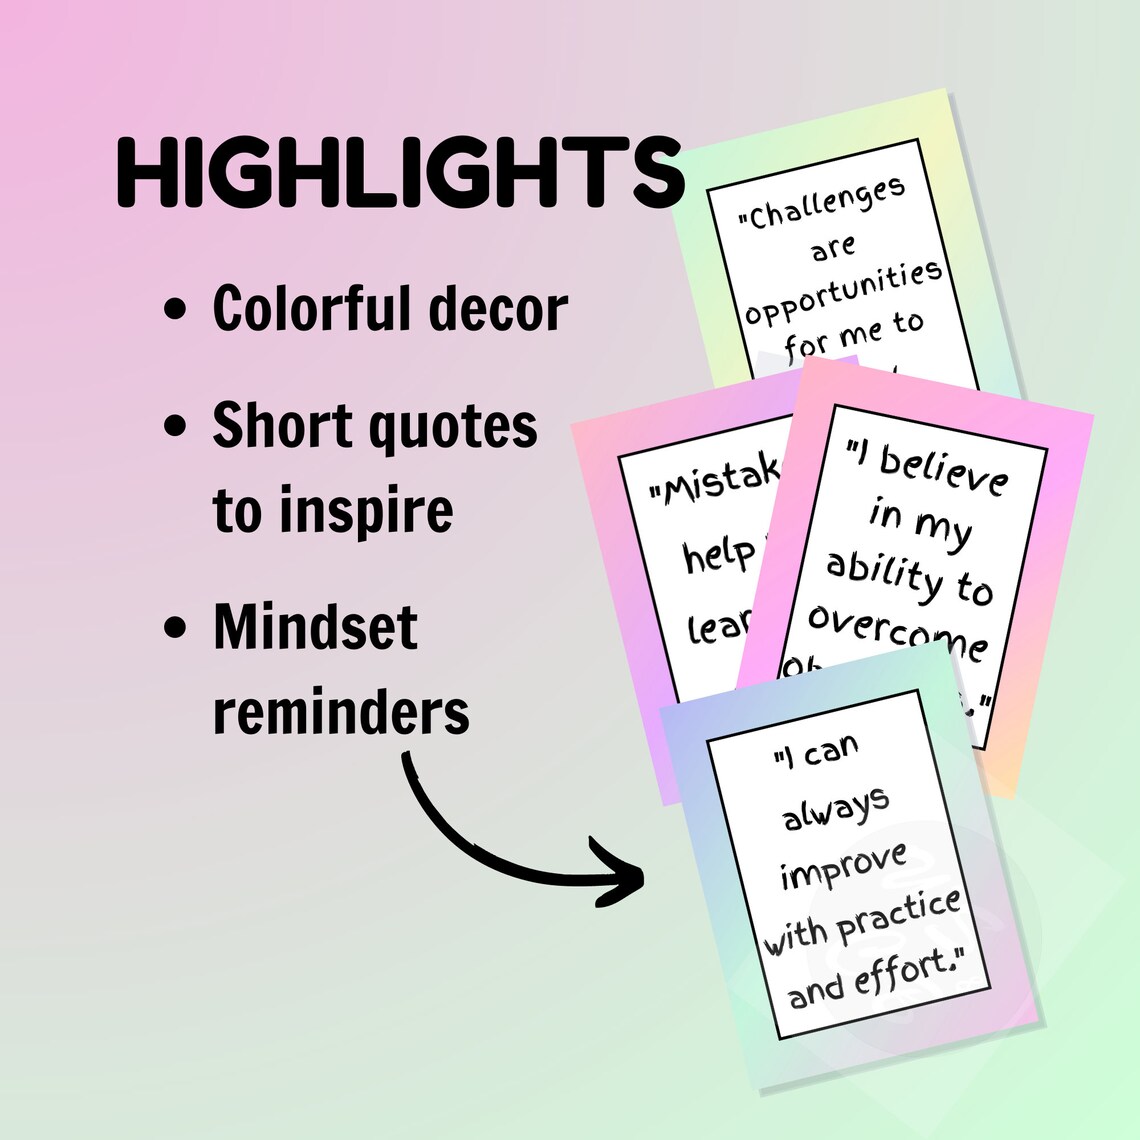 HIGHLIGHTS
• Colorful decor
• Short quotes
to inspire
• Mindset
reminders
"Challenges
are
opportunities
for me to
"Mistak
help
lear
"I believe
in my
ability to
overcome
."
"I can
always
improve
with practice
and effort."